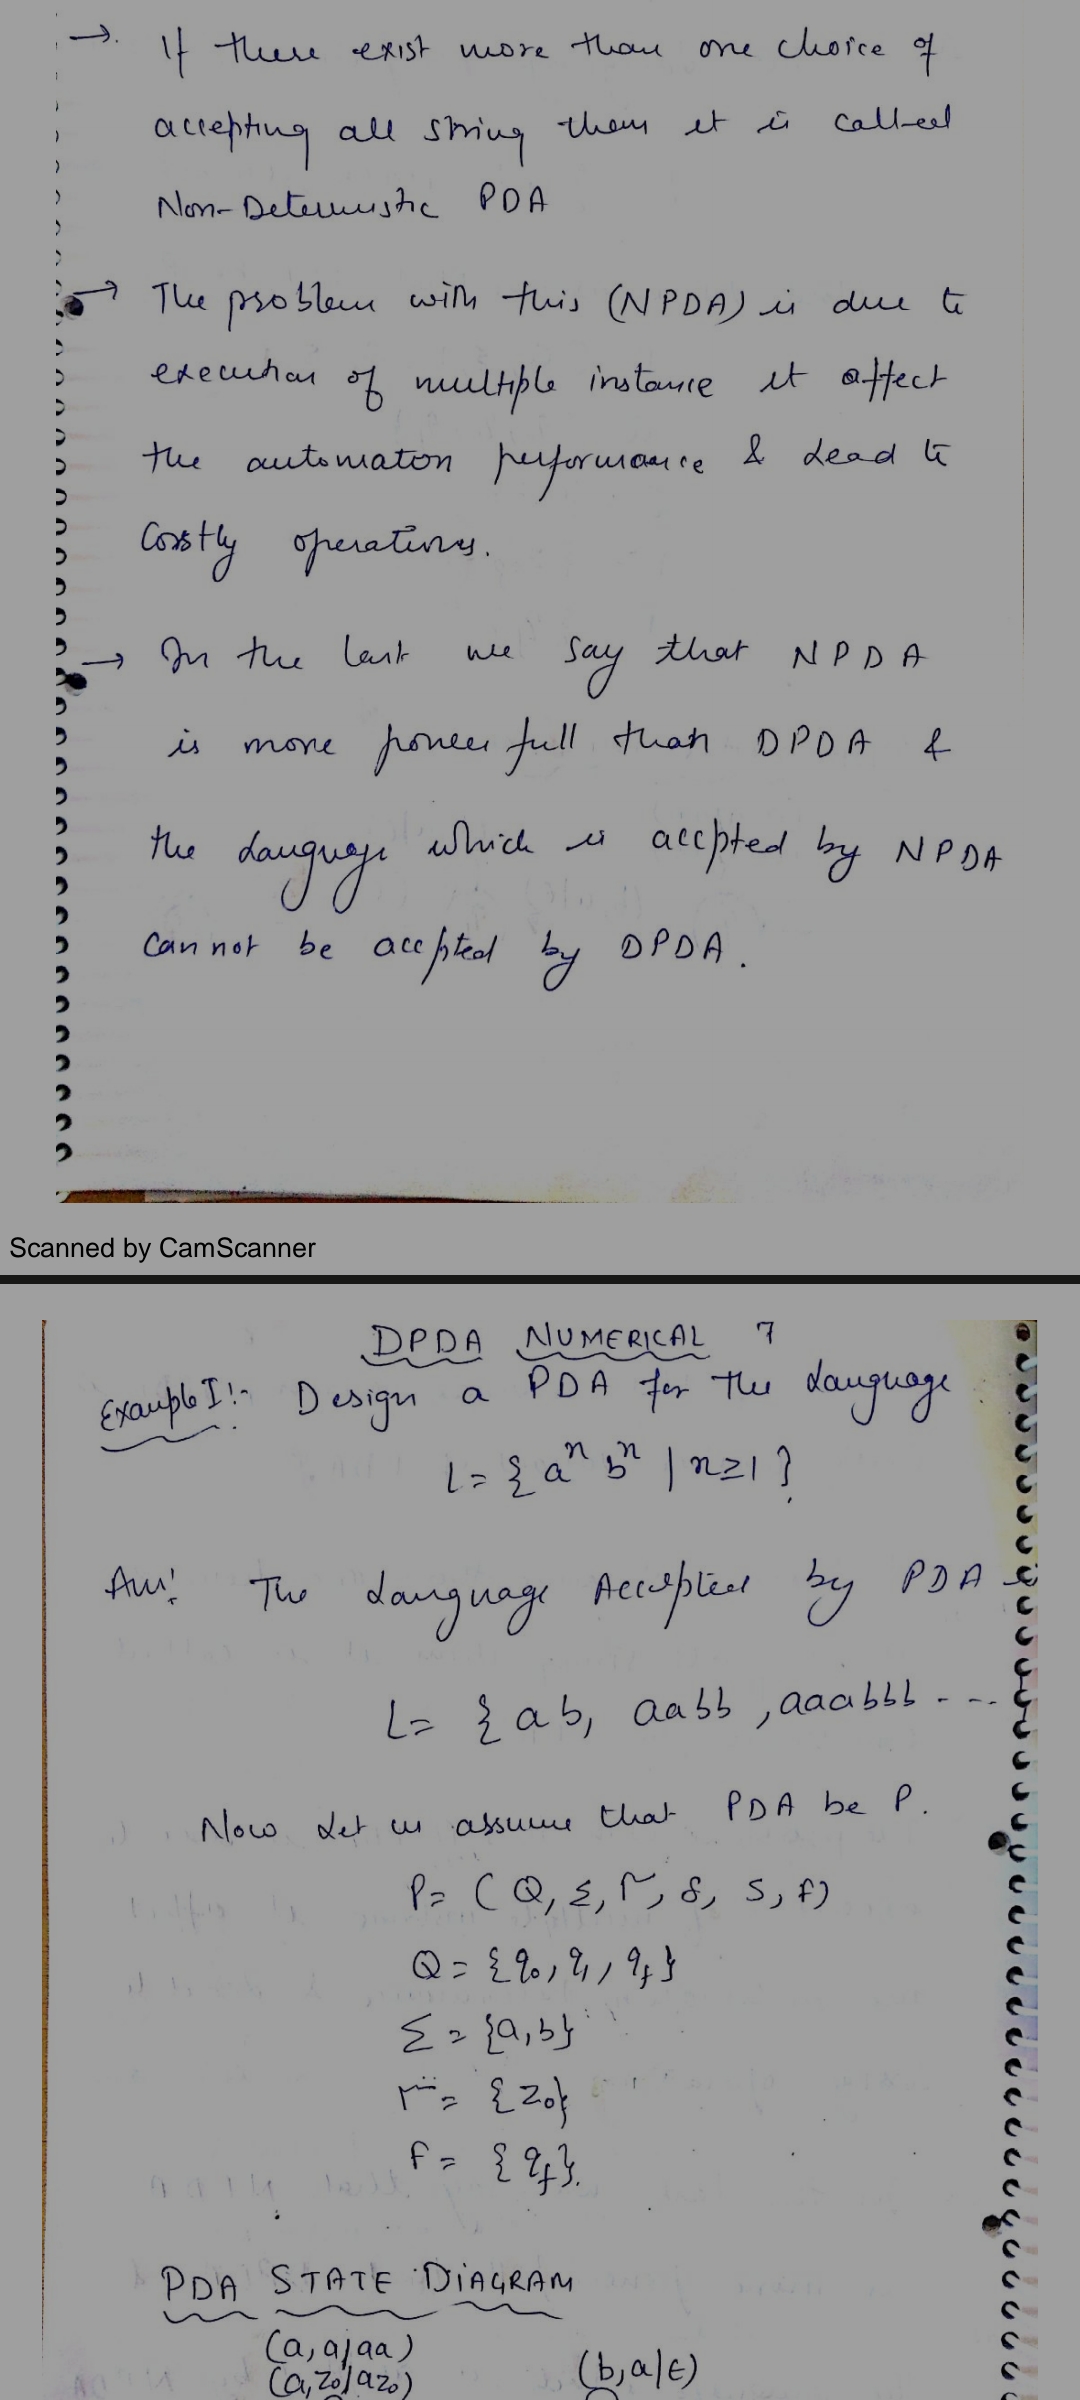 →. If there exist more than one choice of
accepting all string then it is called
Non-Deterministic PDA
→ The problem with this (NPDA) is due to
execution of multiple instance it affect
the automaton performance & Lead to
Costly operations.
→ In the last we say that NPDA
is more power full than DPDA &
the Language which is accpted by NPDA
can not be accpted by DPDA.
Scanned by CamScanner
DPDA NUMERICAL 7
Example I:- Design a PDA for the Language
L = { aⁿ bⁿ | n≥1 }
Ans: The Language Accepted by PDA is
L = { ab, aabb, aaabbb - - -
Now Let us assume that PDA be P.
P = ( Q, Σ, Γ, δ, S, F)
Q = {q₀, q₁, qf}
Σ = {a, b}
Γ = {z₀}
F = {qf}.
PDA STATE DIAGRAM
(a, a/aa)
(a, z₀/az₀) (b, a/ε)